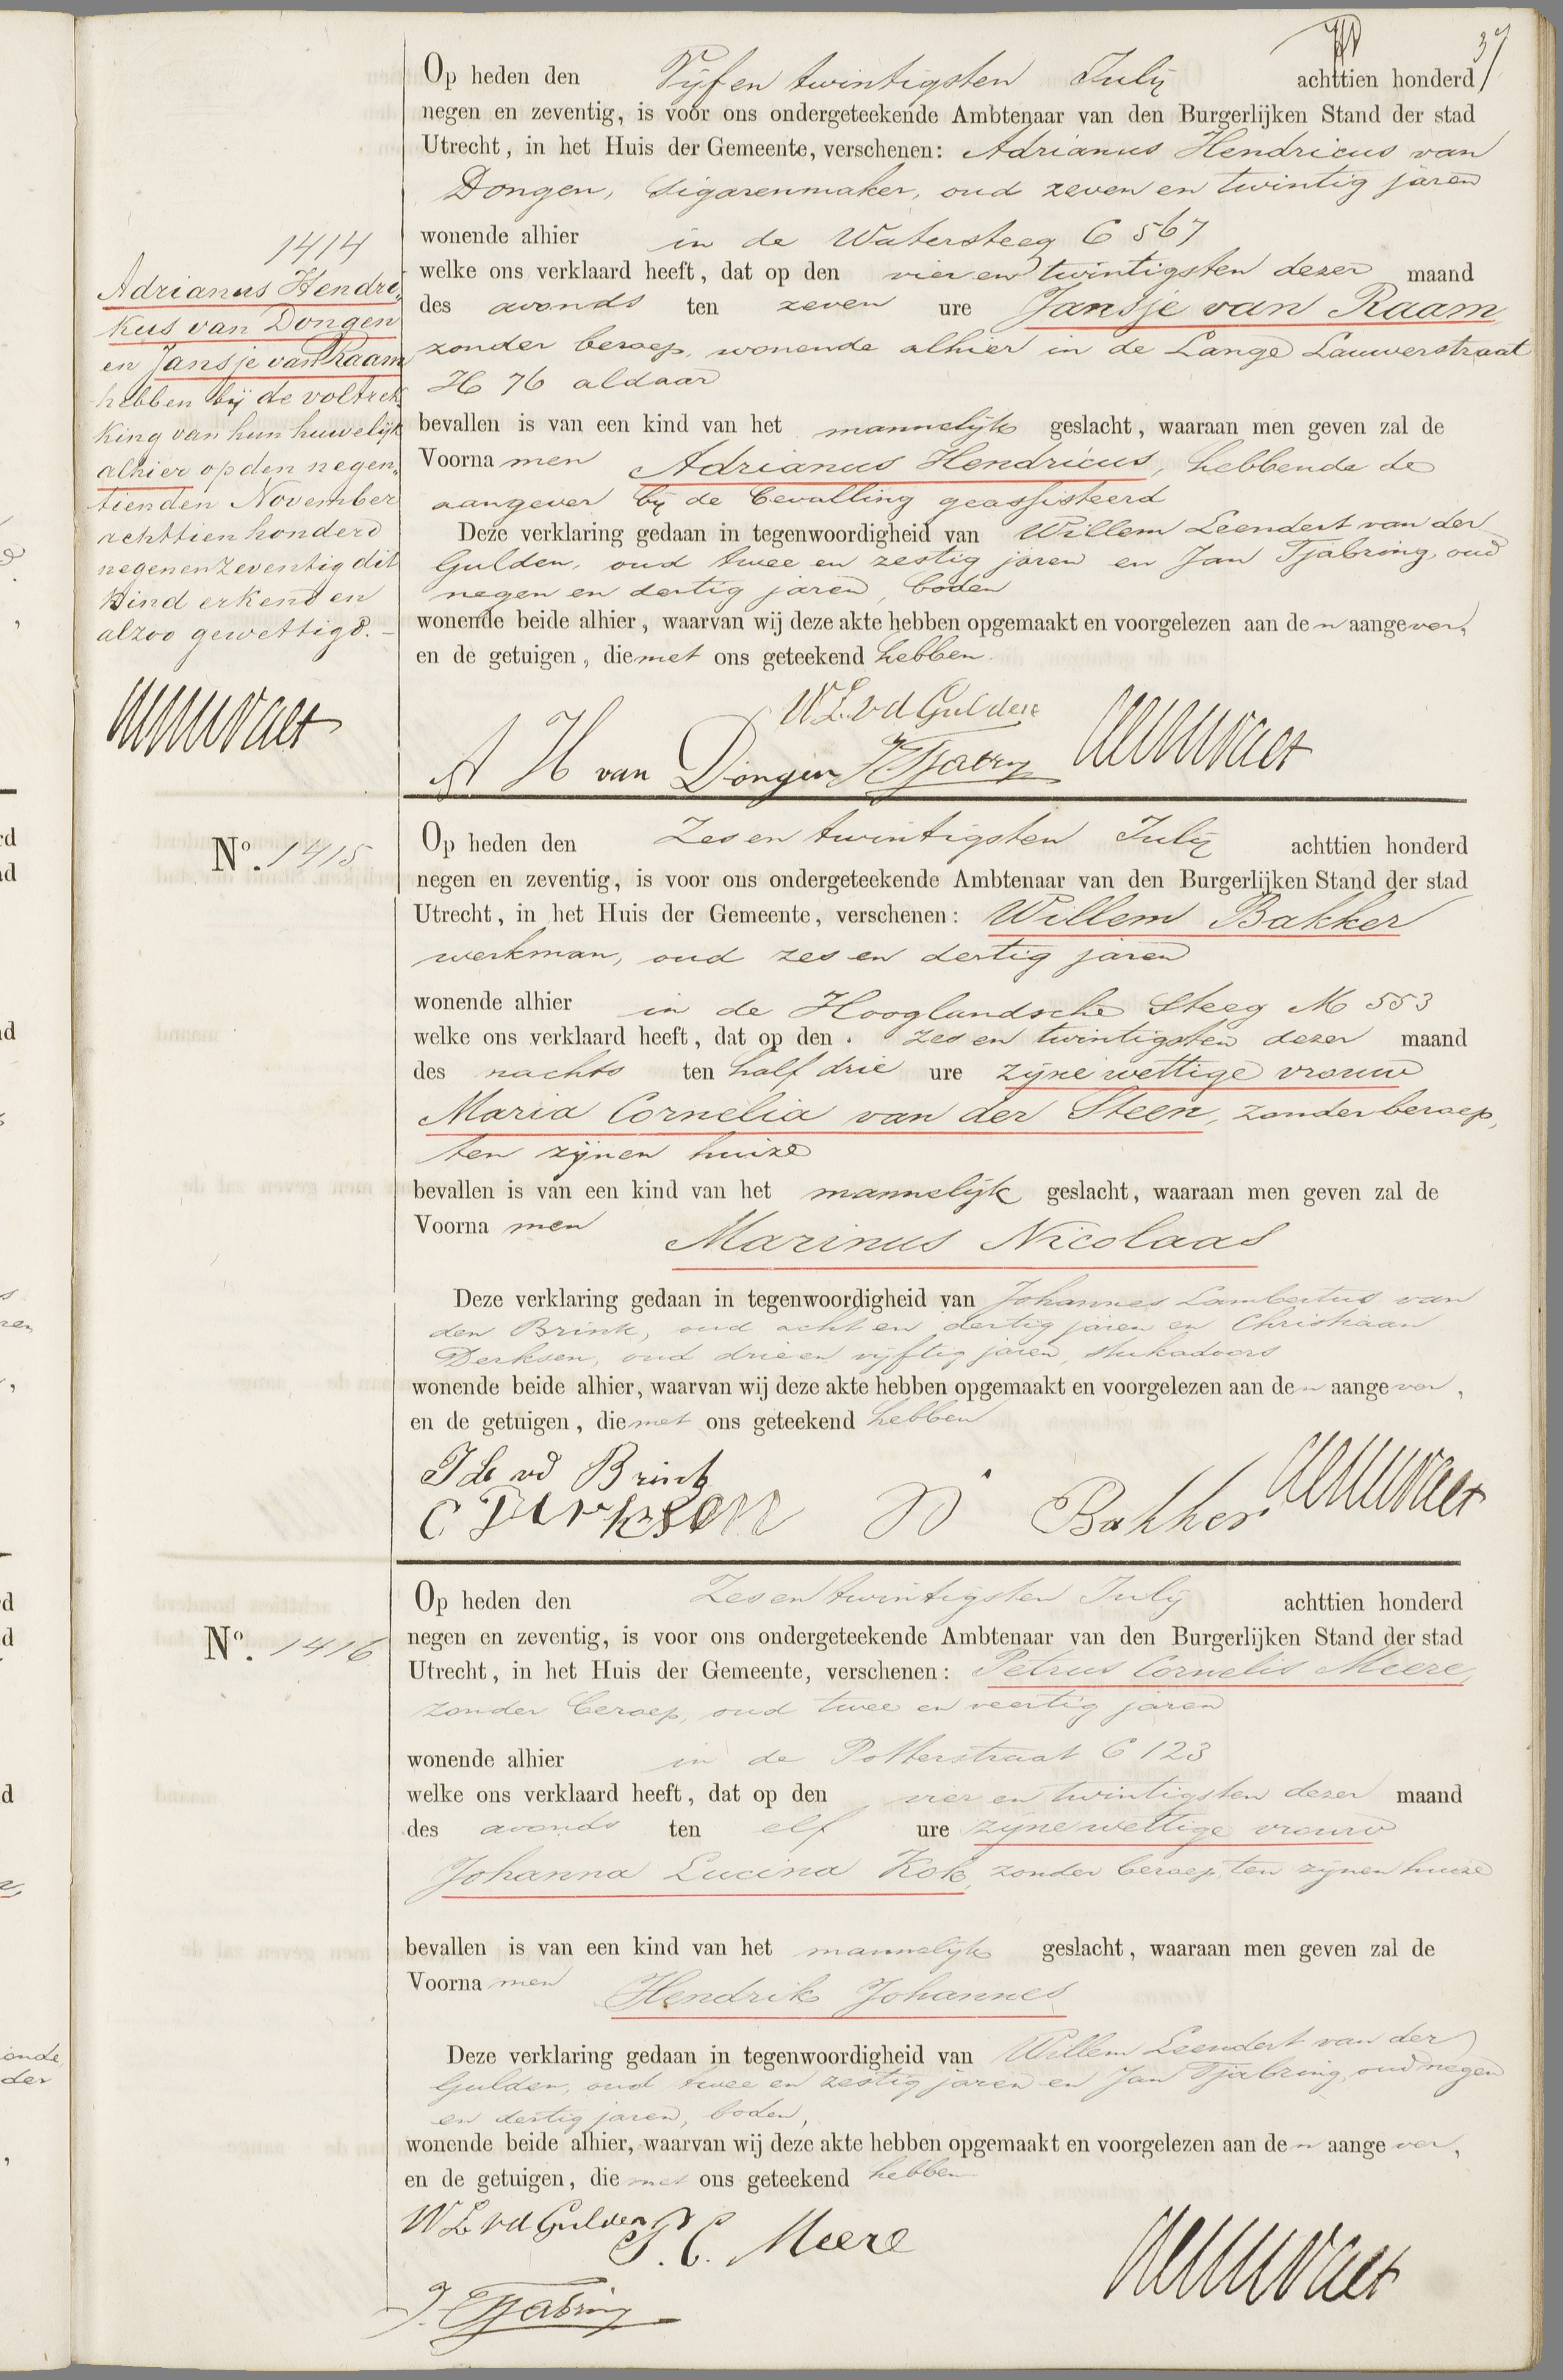 37
Op heden den Vijf en twintigsten July achttien honderd
negen en zeventig, is voor ons ondergeteekende Ambtenaar van den Burgerlijken Stand der stad
Utrecht, in het Huis der Gemeente, verschenen: Adrianus Hendricus van
Dongen, sigarenmaker, oud zeven en twintig jaren
wonende alhier in de Watersteeg C 567
welke ons verklaard heeft, dat op den vier en twintigsten dezer maand
des avonds ten zeven ure Jansje van Raam
zonder beroep, wonende alhier in de Lange Lauwerstraat
H 76 aldaar
bevallen is van een kind van het mannelijk geslacht, waaraan men geven zal de
Voornamen Adrianus Hendricus, hebbende de
aangever bij de bevalling geassisteerd
Deze verklaring gedaan in tegenwoordigheid van Willem Leendert van der
Gulden, oud twee en zestig jaren en Jan Tjabring, oud
negen en dertig jaren, boden
wonende beide alhier, waarvan wij deze akte hebben opgemaakt en voorgelezen aan den aangever,
en de getuigen, die met ons geteekend hebben.
W L v d Gulden
A H van Dongen J Tjabring
1414
Adrianus Hendri,
kus van Dongen
en Jansje van Raam
hebben bij de voltrek,
king van hun huwelijk
alhier op den negen,
tienden November
achttien honderd
negen en zeventig dit
kind erkend en
alzoo gewettigd. -
No. 1415
Op heden den Zes en twintigsten July achttien honderd
negen en zeventig, is voor ons ondergeteekende Ambtenaar van den Burgerlijken Stand der stad
Utrecht, in het Huis der Gemeente, verschenen: Willem Bakker
werkman, oud zes en dertig jaren
wonende alhier in de Hooglandsche Steeg M 553
welke ons verklaard heeft, dat op den zes en twintigsten dezer maand
des nachts ten half drie ure zijne wettige vrouw
Maria Cornelia van der Steen, zonder beroep,
ten zijnen huize
bevallen is van een kind van het mannelijk geslacht, waaraan men geven zal de
Voornamen Marinus Nicolaas
Deze verklaring gedaan in tegenwoordigheid van Johannes Lambertus van
den Brink, oud acht en dertig jaren en Christiaan
Derksen, oud drie en vijftig jaren, stukadoors
wonende beide alhier, waarvan wij deze akte hebben opgemaakt en voorgelezen aan den aangever,
en de getuigen, die met ons geteekend hebben
J L vd Brink
C Derksen W Bakker
No. 1416
Op heden den Zes en twintigsten July achttien honderd
negen en zeventig, is voor ons ondergeteekende Ambtenaar van den Burgerlijken Stand der stad
Utrecht, in het Huis der Gemeente, verschenen: Petrus Cornelis Meere,
zonder beroep, oud twee en veertig jaren
wonende alhier in de Potterstraat C 123
welke ons verklaard heeft, dat op den vier en twintigsten dezer maand
des avonds ten elf ure zijne wettige vrouw
Johanna Lucina Kok, zonder beroep, ten zijnen huize
bevallen is van een kind van het mannelijk geslacht, waaraan men geven zal de
Voornamen Hendrik Johannes
Deze verklaring gedaan in tegenwoordigheid van Willem Leendert van der
Gulden, oud twee en zestig jaren en Jan Tjabring, oud negen
en dertig jaren, boden,
wonende beide alhier, waarvan wij deze akte hebben opgemaakt en voorgelezen aan den aangever,
en de getuigen, die met ons geteekend hebben
W L vd Gulden P. C. Meere
J. Tjabring